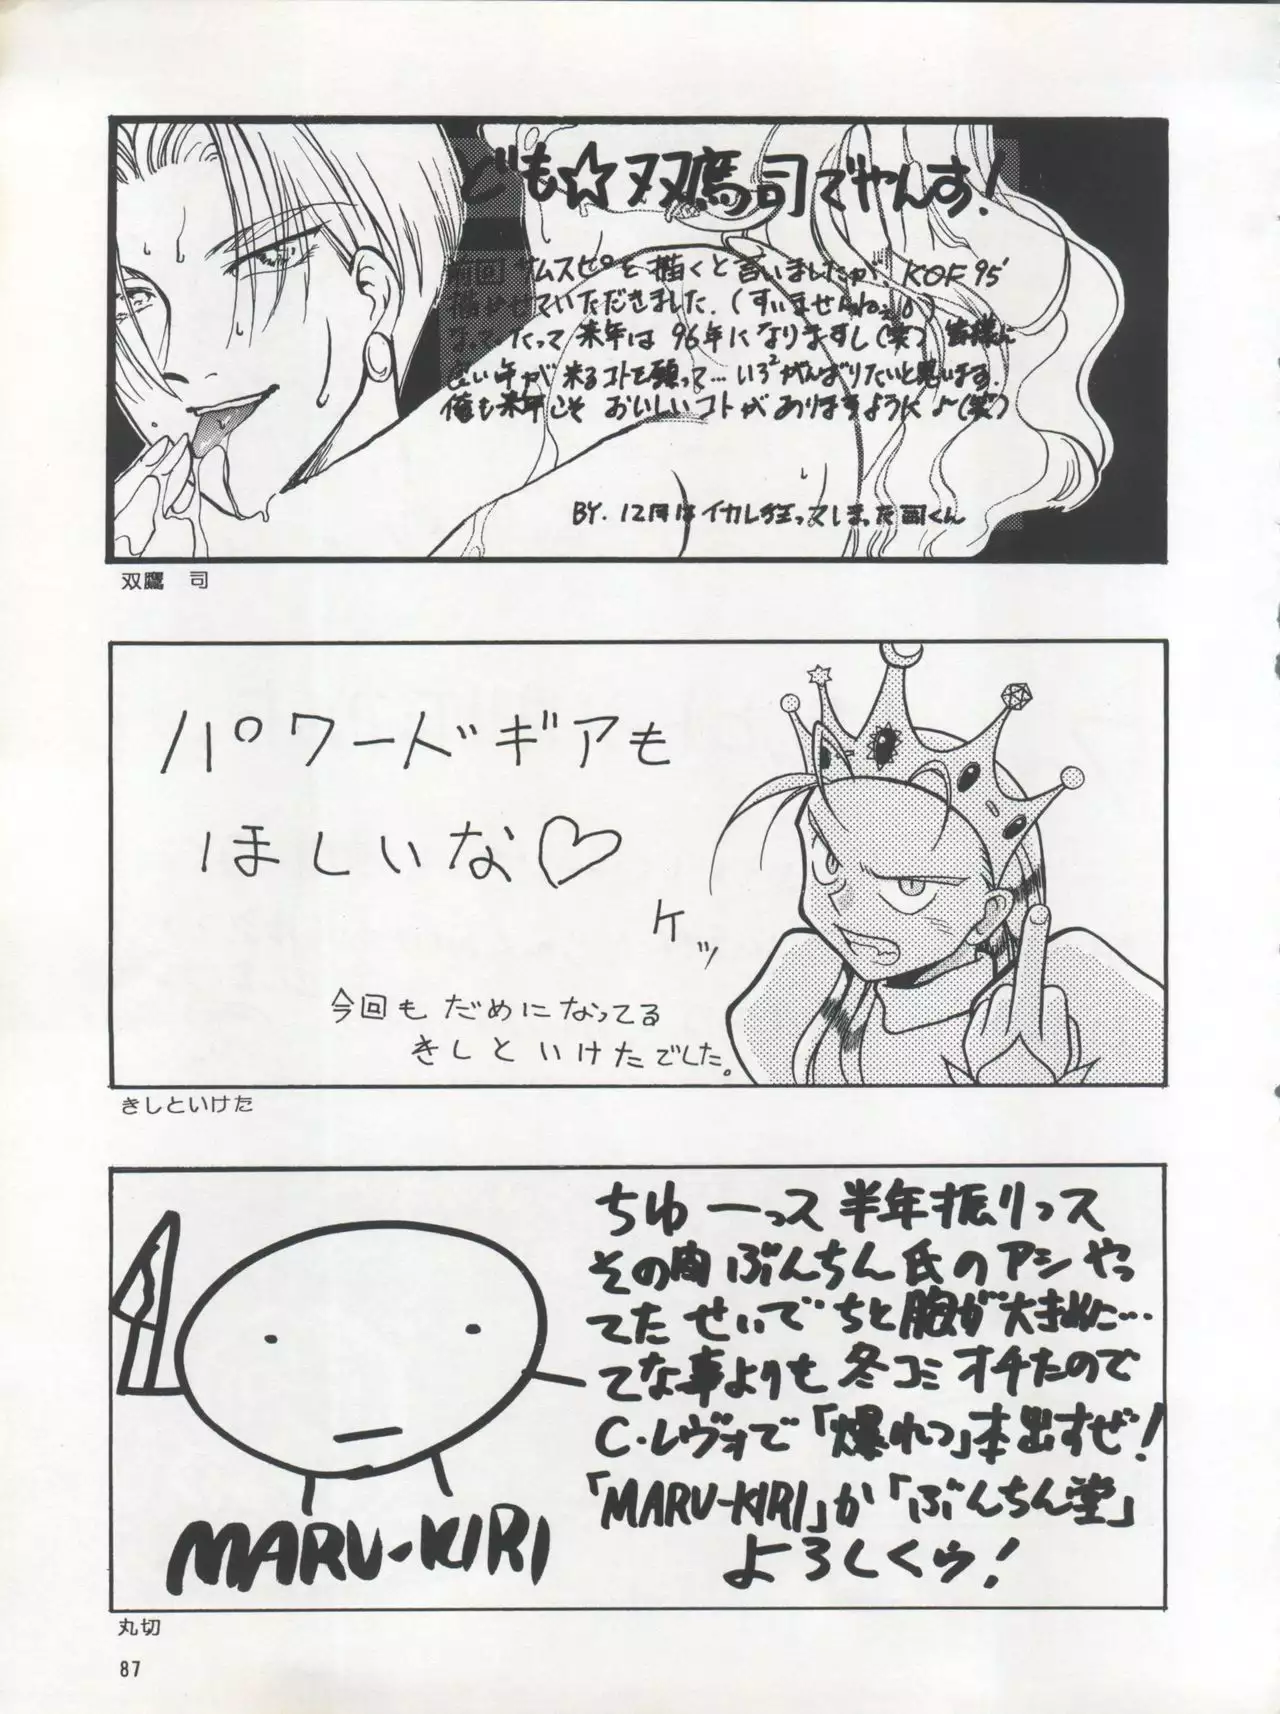 ども☆双鷹司でやんす!
前回 サムスピを描くと言いましたが KOF95'
描かせていただきました.(すいませんねぇ)
なってたって 来年は 96年になりますし(笑) 皆様に
良い年が 来るコトを願って… いろ²がんばりたいと思います.
俺も来年こそ おいしいコトが ありますように〜(笑)
BY. 12月はイカレ狂ってしまった司くん
双鷹 司
パワードギアも
ほしいな♡
ケッ
今回も だめになってる
きしといけたでした。
きしといけた
ちゅーっス 半年振りっス
その内 ぶんちん氏のアシやっ
てた せいで ちと胸が大きめに…
てな事よりも 冬コミ オチたので
C・レヴォで「爆れつ」本出すぜ!
「MARU-KIRI」か「ぶんちん堂」
よろしくゥ!
MARU-KIRI
丸切
87